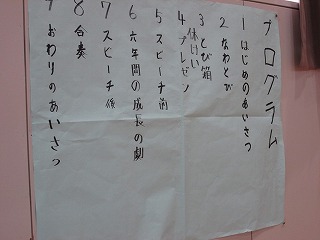 プログラム
1 はじめのあいさつ
2 なわとび
3 とび箱
休けい
4 プレゼン
5 スピーチ前
6 六年間の成長の劇
7 スピーチ後
8 合奏
9 おわりのあいさつ